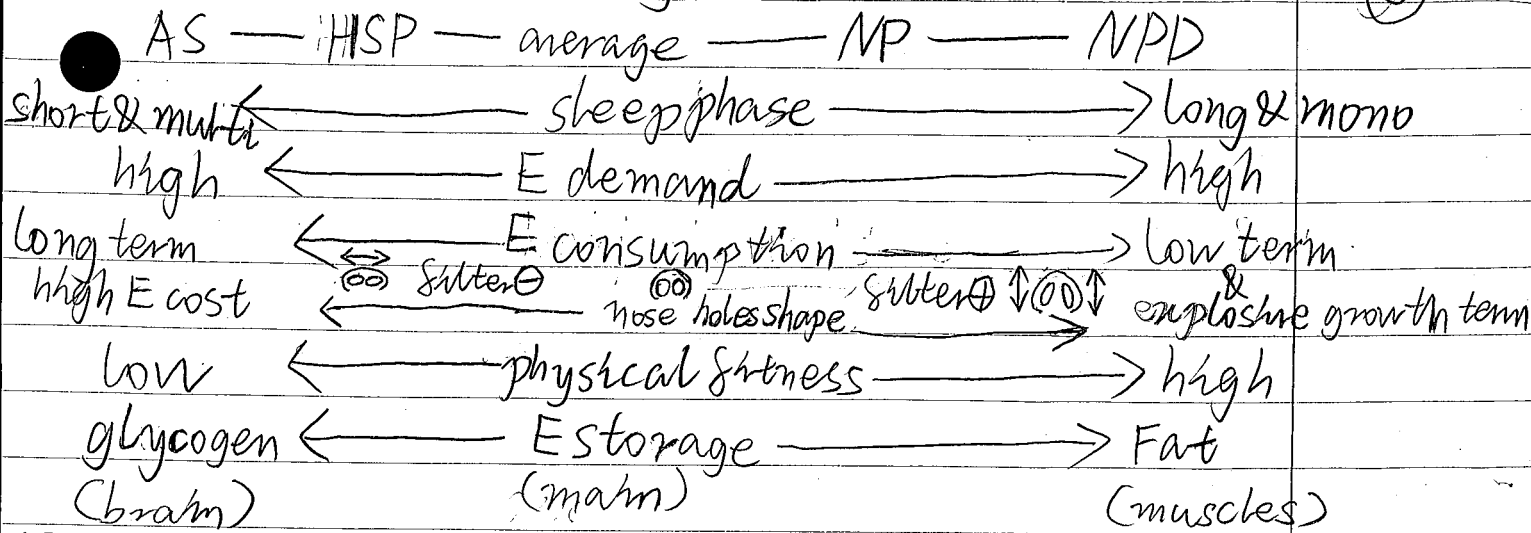 AS — HSP — average — NP — NPD
short & multi ← sleep phase → long & mono
high ← E demand → high
long term ← E consumption → low term
high E cost ↔ filter⊖ ← nose holes shape → filter⊕ ↕ ↕ & explosive growth term
low ← physical fitness → high
glycogen ← E storage → Fat
(brain) (main) (muscles)